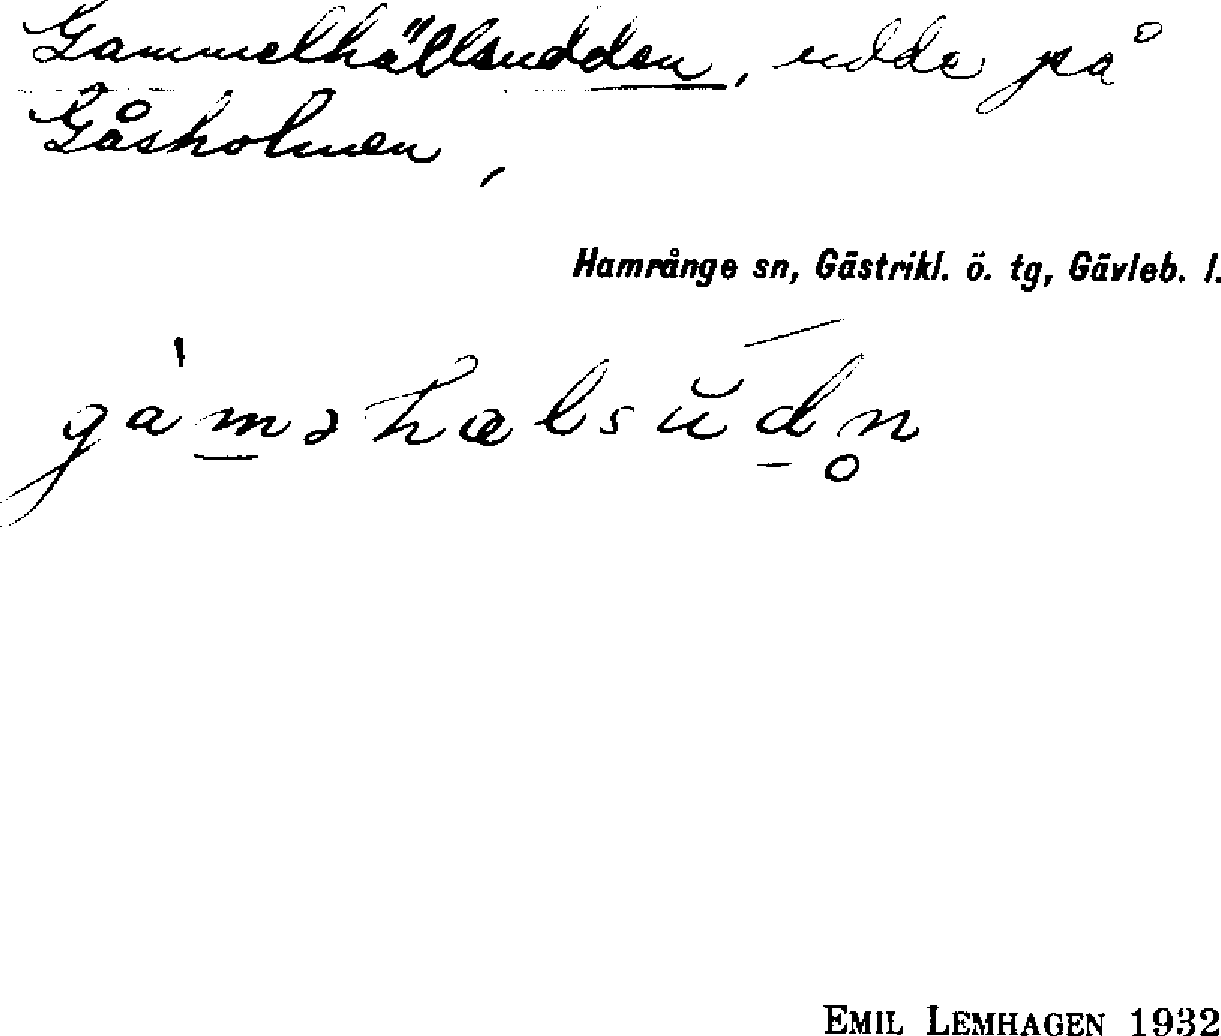 Gammelhällsudden, udde på
Gåsholmen,
Hamrånge sn, Gästrikl. ö. tg, Gävleb. l.
gàm̠əhælsŭd̠n̥
EMIL LEMHAGEN 1932